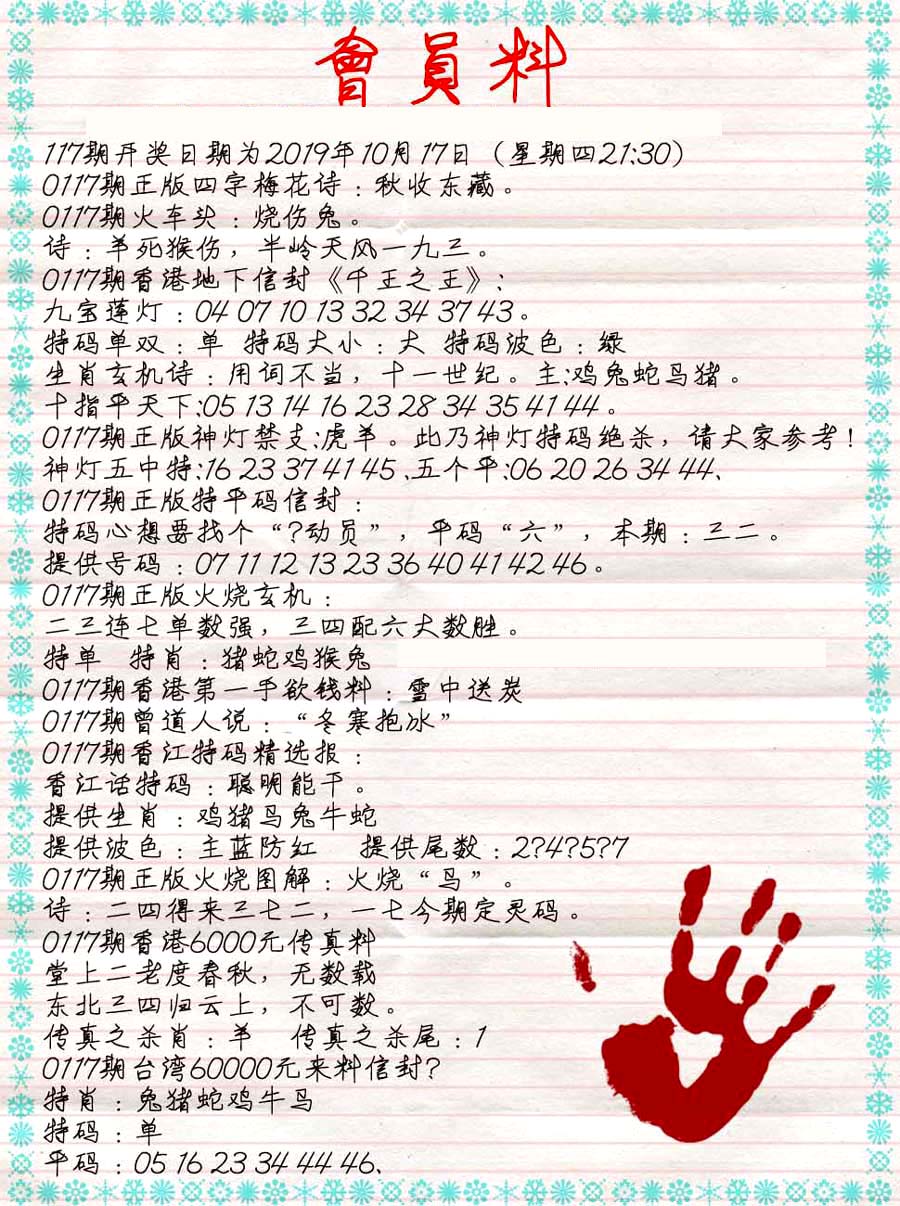 會員料
117期开奖日期为2019年10月17日（星期四21:30）
0117期正版四字梅花诗：秋收东藏。
0117期火车头：烧伤兔。
诗：羊死猴伤，半岭天风一九三。
0117期香港地下信封《千王之王》：
九宝莲灯：04 07 10 13 32 34 37 43。
特码单双：单  特码大小：大  特码波色：绿
生肖玄机诗：用词不当，十一世纪。主:鸡兔蛇马猪。
十指平天下:05 13 14 16 23 28 34 35 41 44。
0117期正版神灯禁支:虎羊。此乃神灯特码绝杀，请大家参考！
神灯五中特:16 23 37 41 45、五个平:06 20 26 34 44、
0117期正版特平码信封：
特码心想要找个“?动员”，平码“六”，本期：三二。
提供号码：07 11 12 13 23 36 40 41 42 46。
0117期正版火烧玄机：
二三连七单数强，三四配六大数胜。
特单  特肖：猪蛇鸡猴兔
0117期香港第一手欲钱料：雪中送炭
0117期曾道人说：“冬寒抱冰”
0117期香江特码精选报：
香江话特码：聪明能干。
提供生肖：鸡猪马兔牛蛇
提供波色：主蓝防红   提供尾数：2?4?5?7
0117期正版火烧图解：火烧“鸟”。
诗：二四得来三七二，一七今期定灵码。
0117期香港6000元传真料
堂上二老度春秋，无数载
东北三四归云上，不可数。
传真之杀肖：羊   传真之杀尾：1
0117期台湾60000元来料信封?
特肖：兔猪蛇鸡牛马
特码：单
平码：05 16 23 34 44 46、